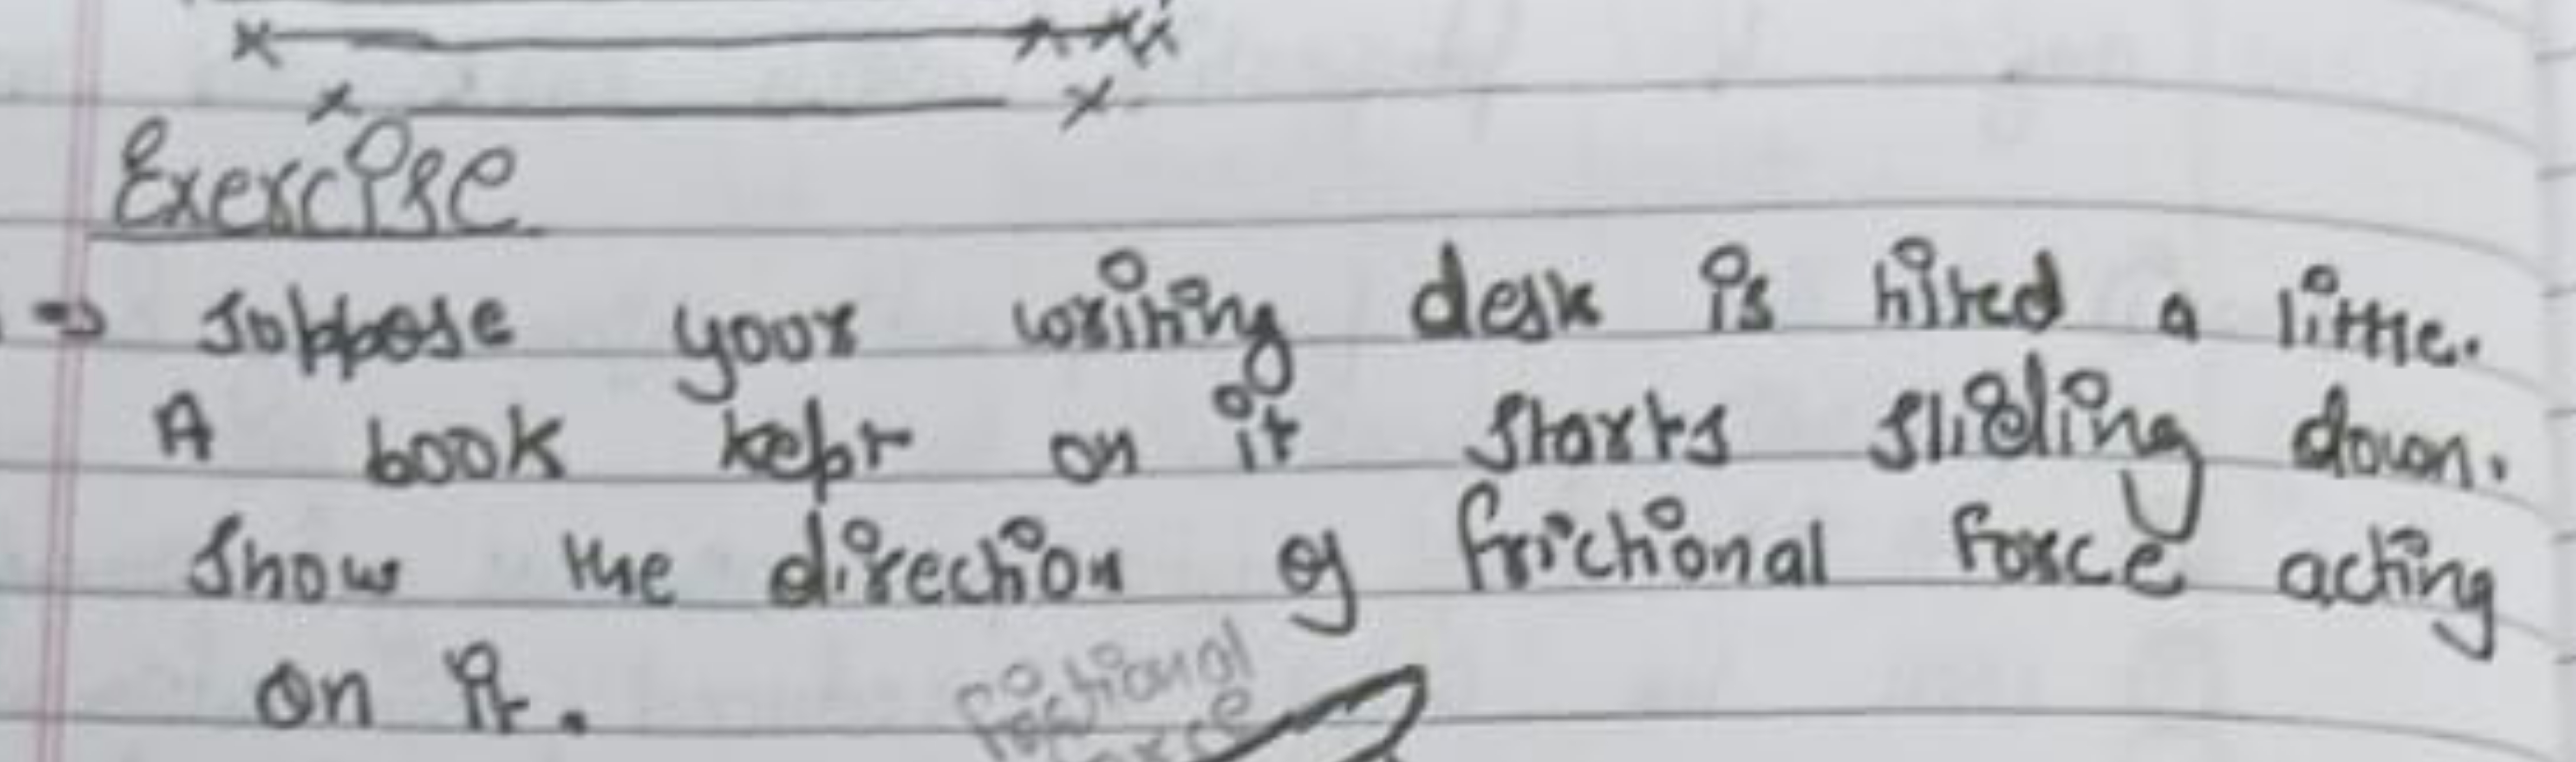 Exercise
⇒ Suppose your writing desk is tilted a little.
A book kept on it starts sliding down.
Show the direction of frictional force acting
on it.
frictional
force